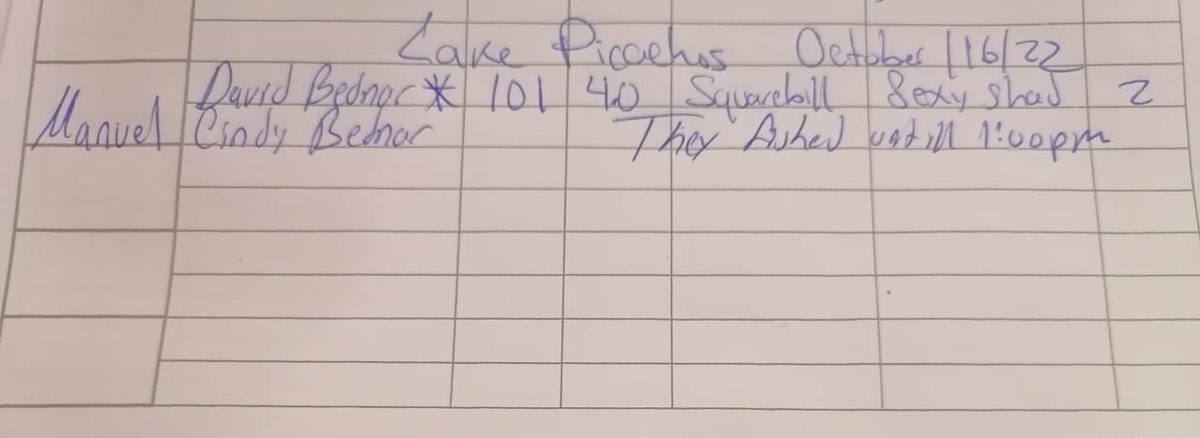 Lake Picachos October /16/22
Manuel David Bednar * 101 4.0 Squarebill Sexy Shad 2
Cindy Bednar They fished untill 1:00pm